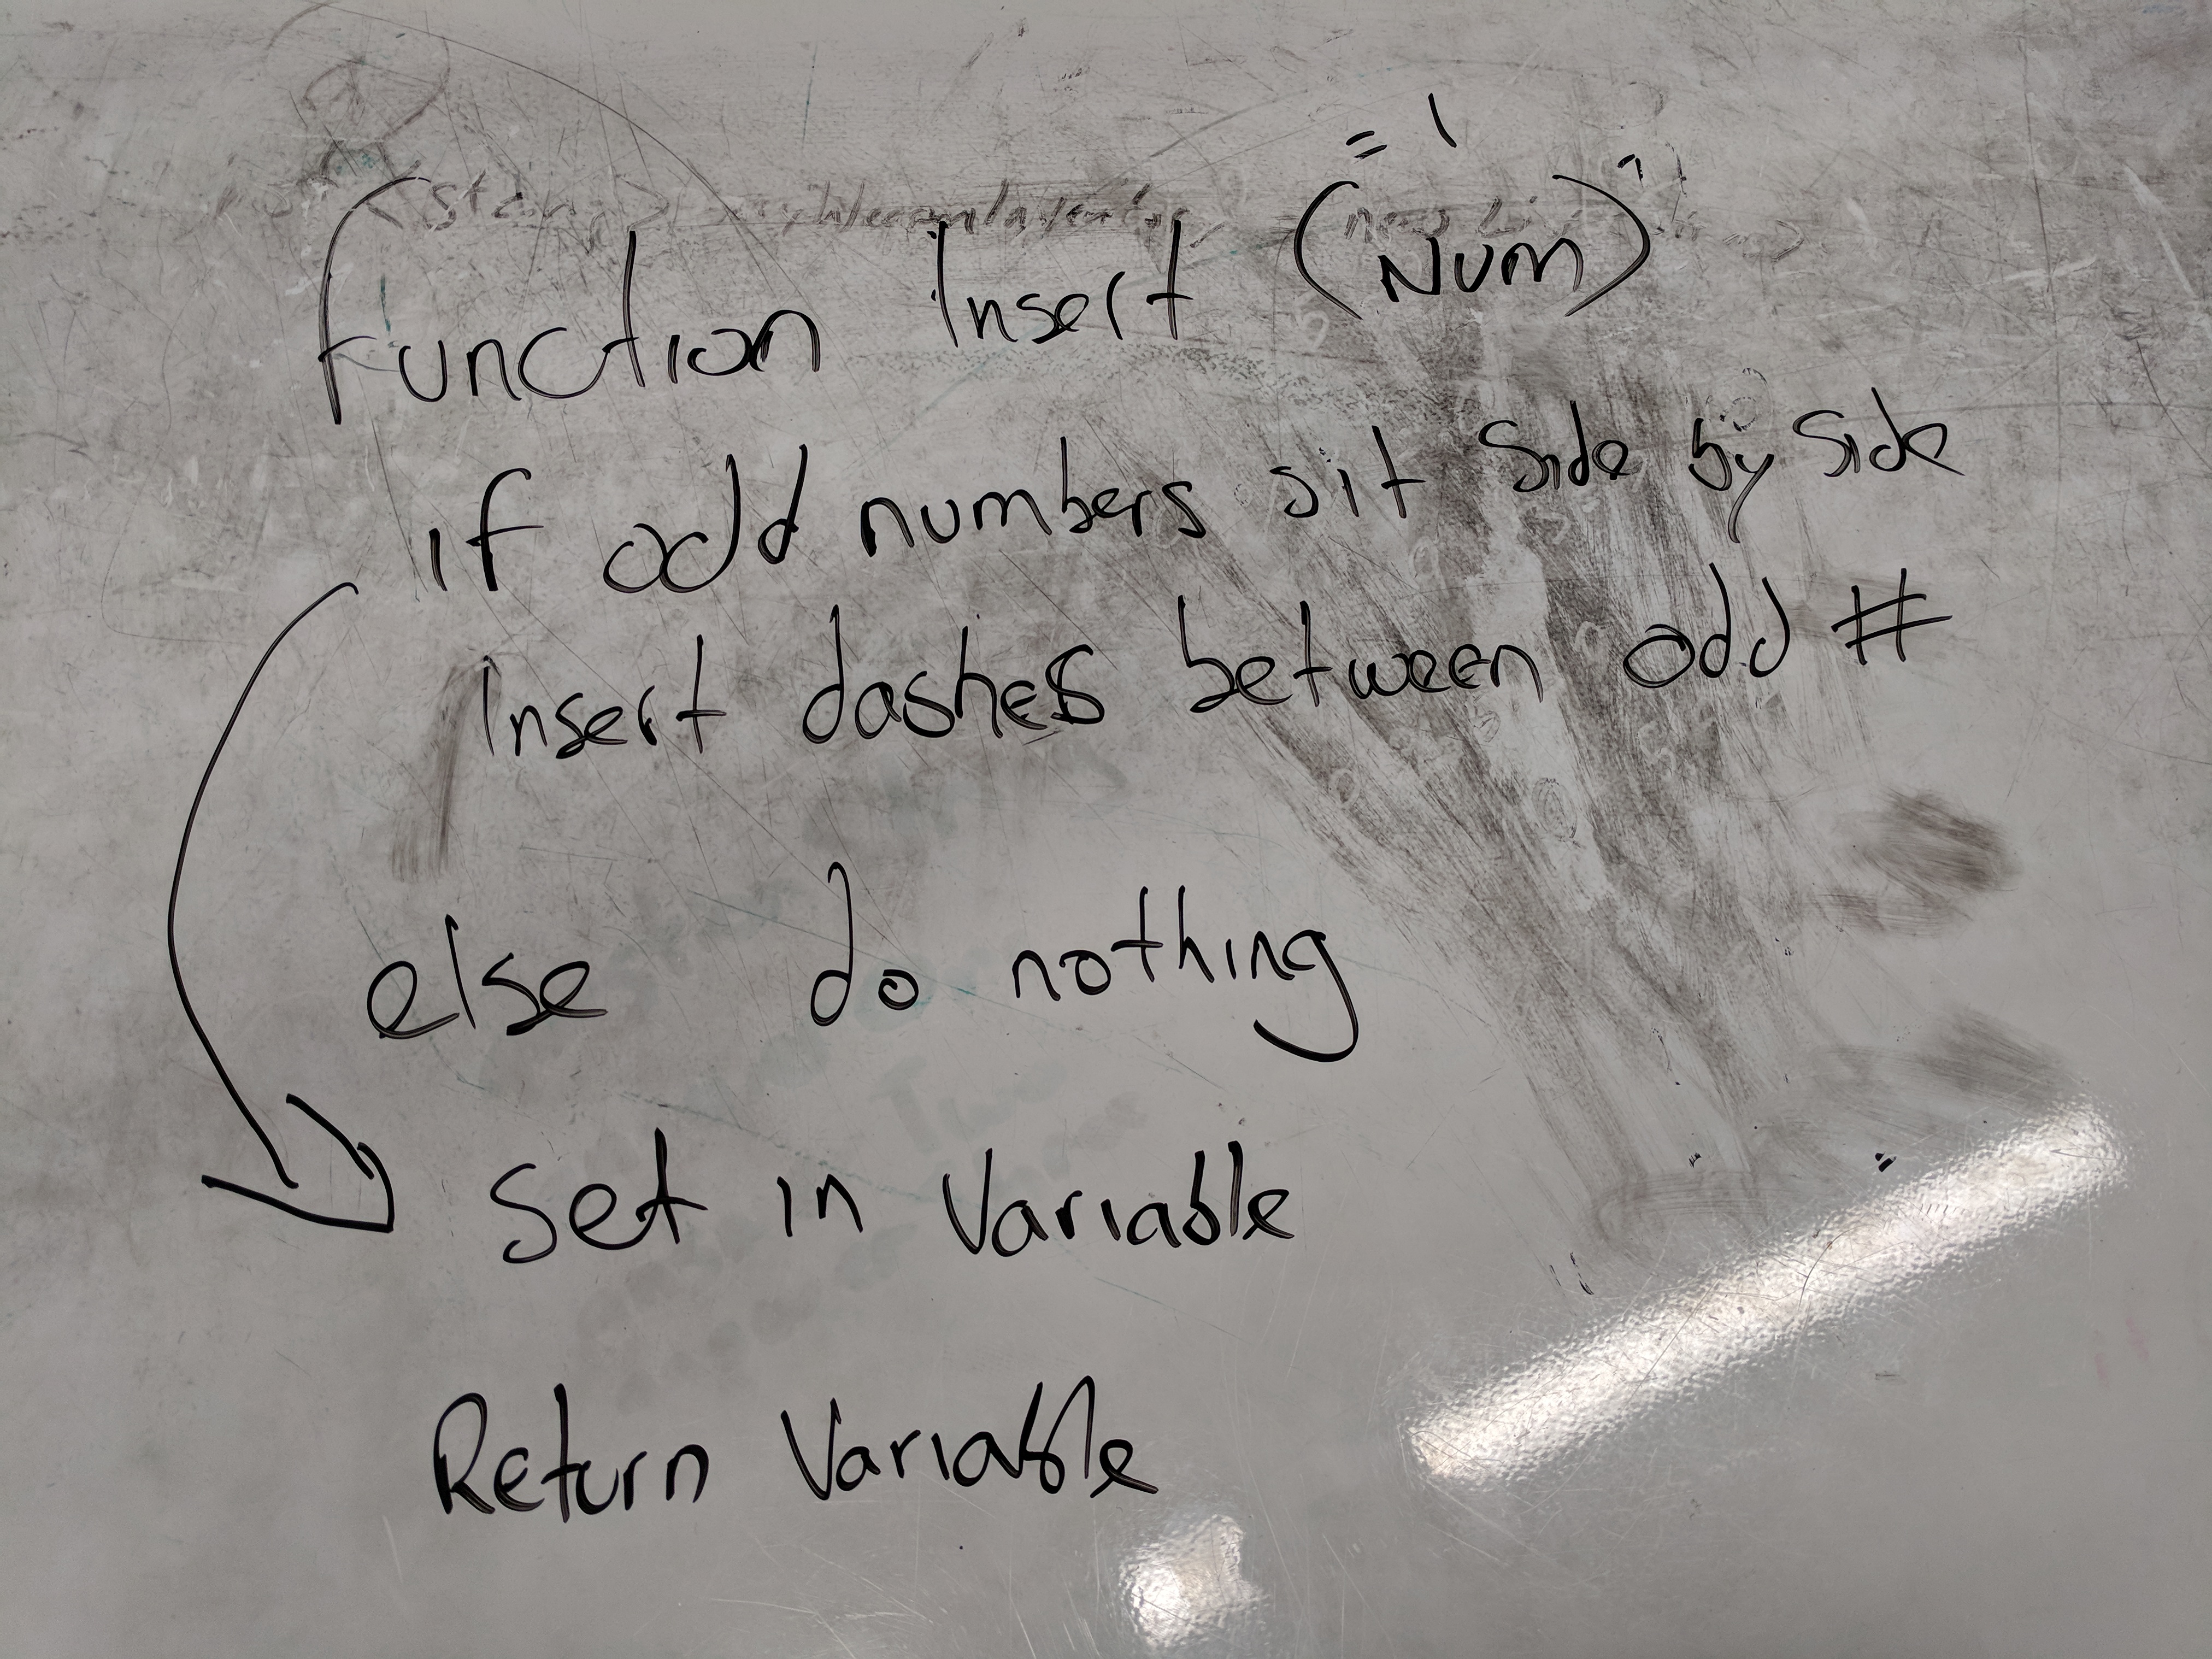 function Insert (Num)
if odd numbers sit side by side
Insert dashes between odd #
else do nothing
Set in Variable
Return Variable